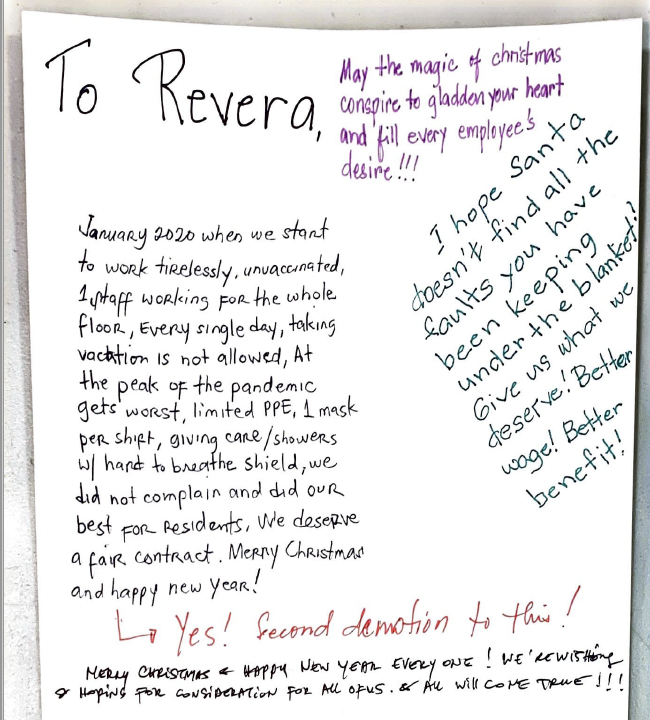 To Revera,
May the magic of christmas
conspire to gladden your heart
and fill every employee's
desire!!!
I hope Santa
doesn't find all the
faults you have
been keeping
under the blanket!?
Give us what we
deserve! Better
wage! Better
benefit!
January 2020 when we start
to work tirelessly, unvaccinated,
1 staff working for the whole
floor, Every single day, taking
vacation is not allowed, At
the peak of the pandemic
gets worst, limited PPE, 1 mask
per shift, giving care/showers
w/ hard to breathe shield, we
did not complain and did our
best for residents, We deserve
a fair contract. Merry Christmas
and happy new year!
↳ Yes! Second demotion to this!
MERRY CHRISTMAS & HAPPY NEW YEAR EVERY ONE! WE'RE WISHING
& HOPING FOR CONSIDERATION FOR ALL OF US. & ALL WILL COME TRUE!!!